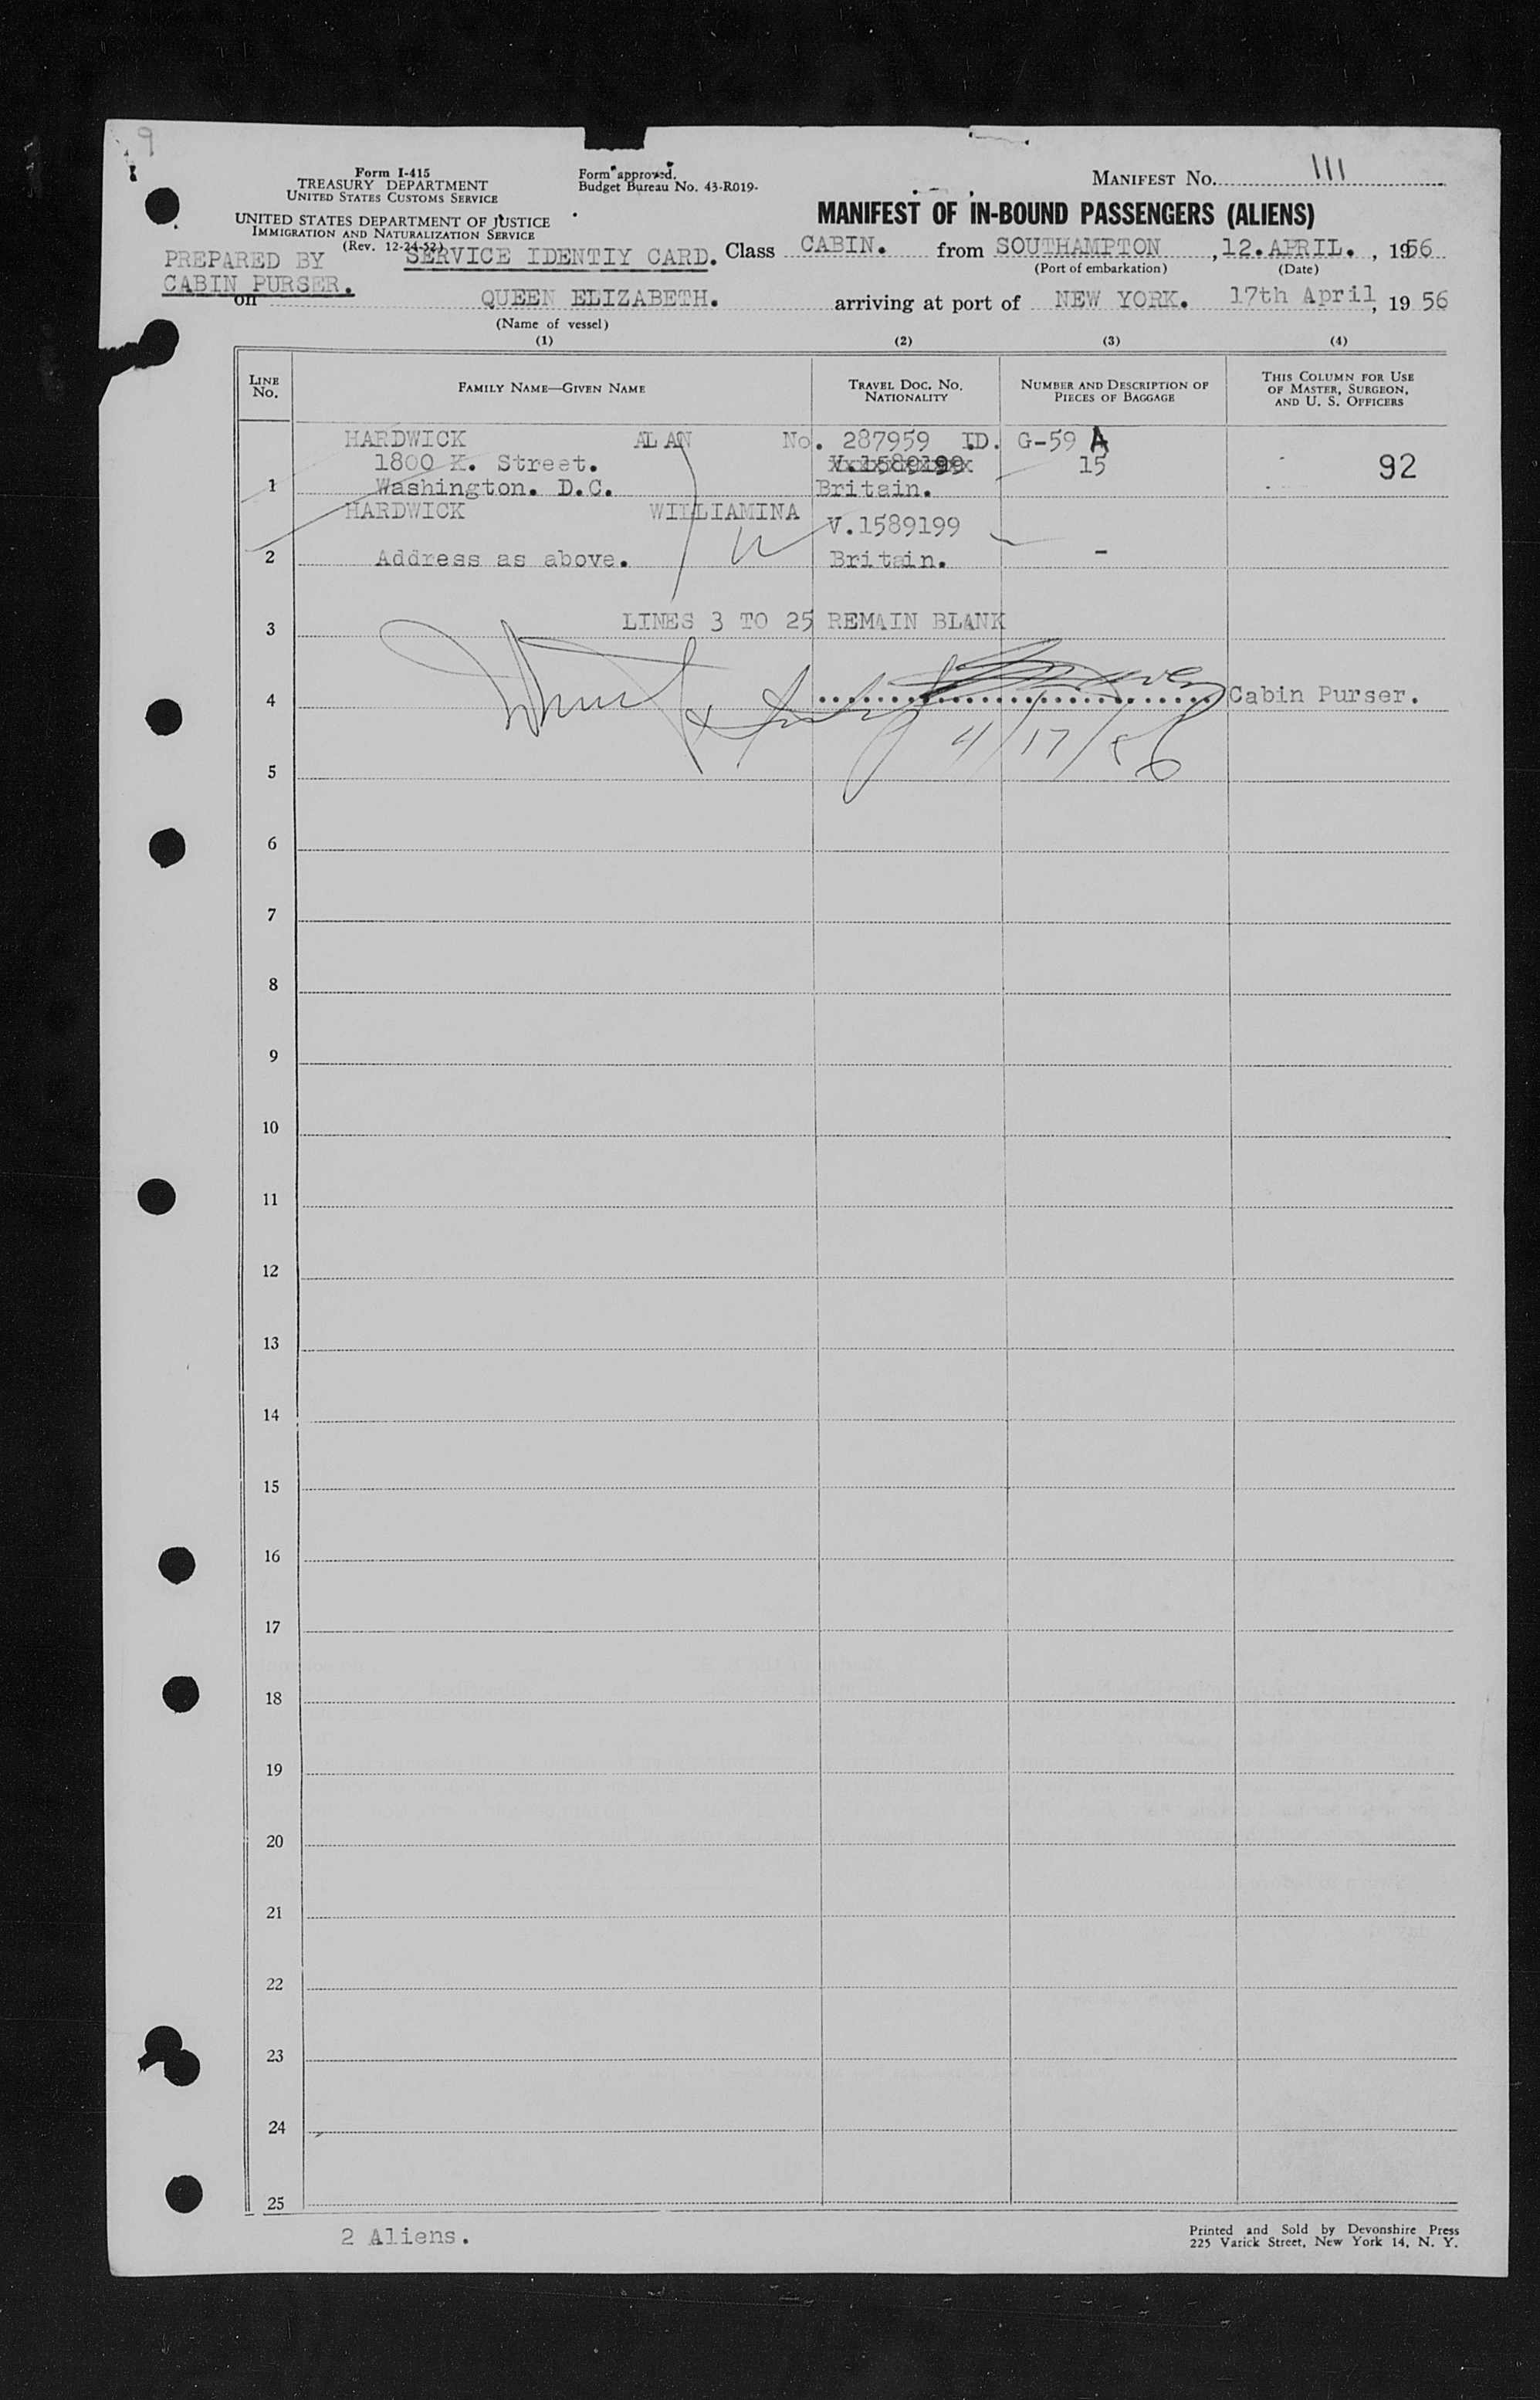 9
Form I-415
TREASURY DEPARTMENT
UNITED STATES CUSTOMS SERVICE
UNITED STATES DEPARTMENT OF JUSTICE
IMMIGRATION AND NATURALIZATION SERVICE
(Rev. 12-24-52)
Form approved.
Budget Bureau No. 43-R019.
MANIFEST NO. 111
MANIFEST OF IN-BOUND PASSENGERS (ALIENS)
PREPARED BY
CABIN PURSER.
SERVICE IDENTIY CARD. Class CABIN. from SOUTHAMPTON, 12.APRIL., 1956
(Port of embarkation) (Date)
on QUEEN ELIZABETH. arriving at port of NEW YORK. 17th April, 1956
(Name of vessel)
(1) (2) (3) (4)
LINE NO.
FAMILY NAME—GIVEN NAME
TRAVEL DOC. NO.
NATIONALITY
NUMBER AND DESCRIPTION OF
PIECES OF BAGGAGE
THIS COLUMN FOR USE
OF MASTER, SURGEON,
AND U. S. OFFICERS
HARDWICK ALAN No. 287959 I.D. G-59 A
1800 K. Street. V.1589199 15 92
1 Washington. D.C. Britain.
HARDWICK WILLIAMINA V.1589199
2 Address as above. Britain. -
LINES 3 TO 25 REMAIN BLANK
3
4 Cabin Purser.
4/17/56
5
6
7
8
9
10
11
12
13
14
15
16
17
18
19
20
21
22
23
24
25
2 Aliens.
Printed and Sold by Devonshire Press
225 Varick Street, New York 14, N. Y.